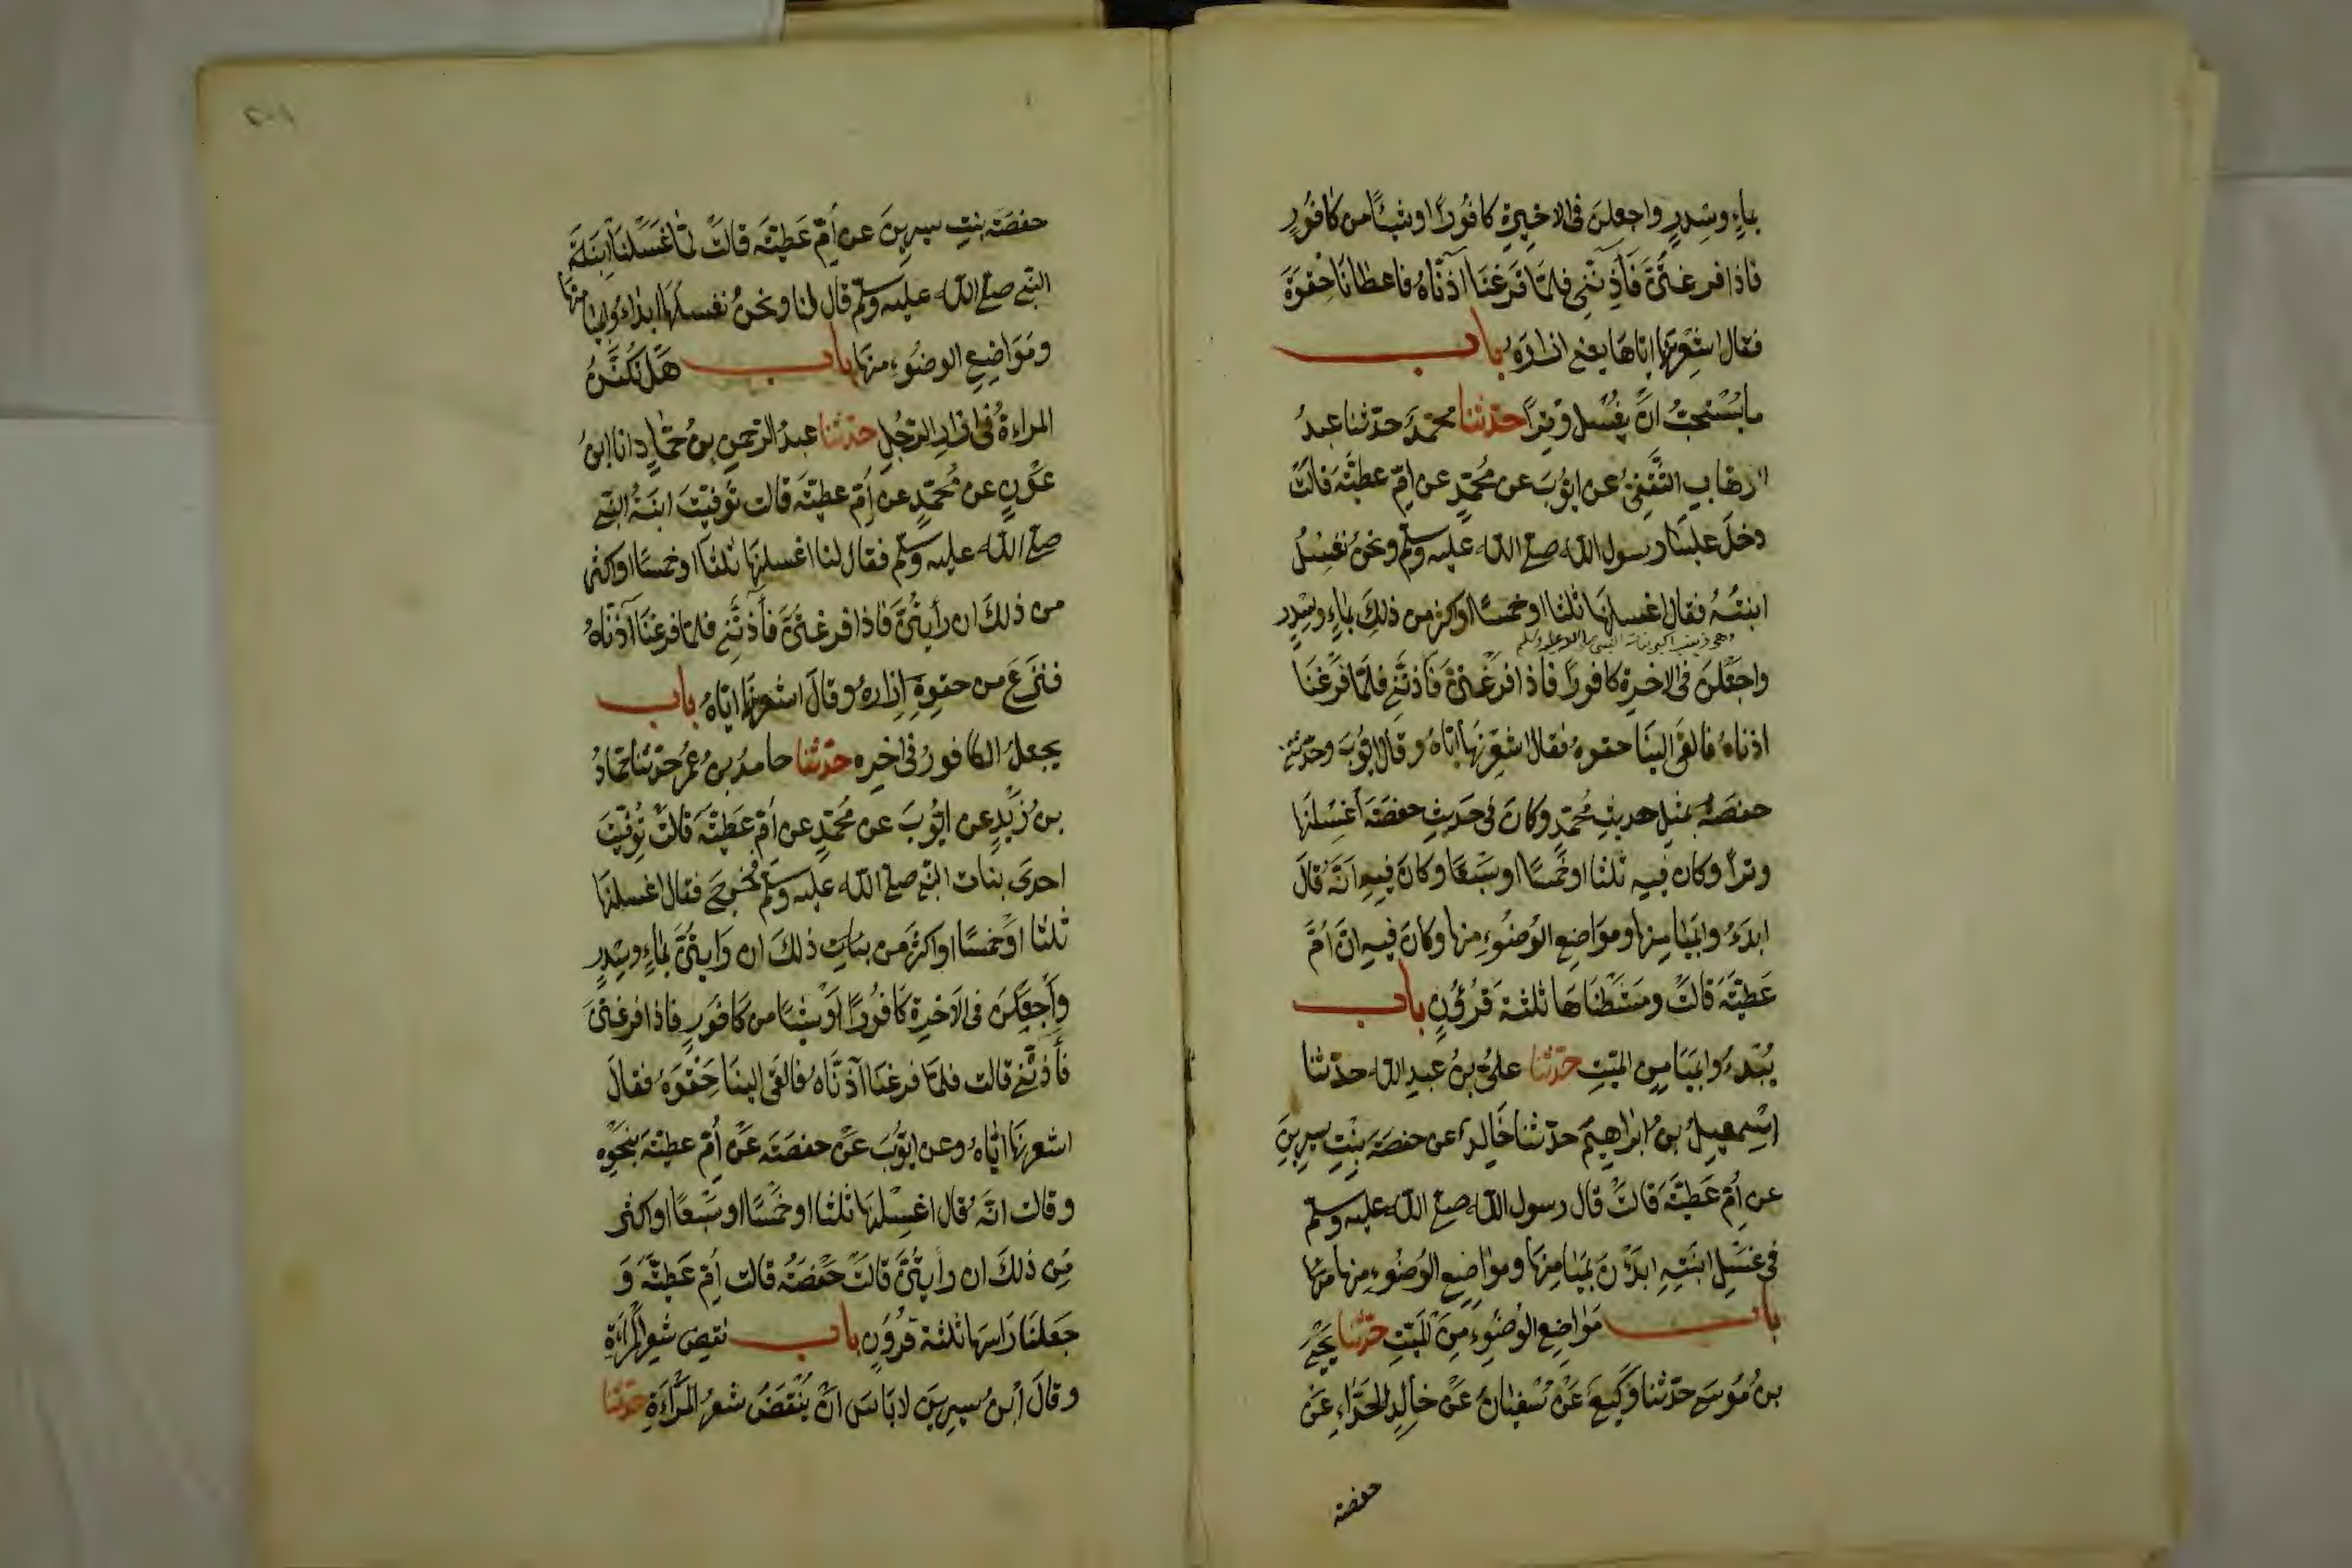 بماءٍ وسِدرٍ واجعلنَ فى الاخيرةِ كافُورًا اوشيئًا من كافُورٍ
فاذا فرغتُنَّ فَآذِنَّنِى فلمَّا فَرَغنَا آذنَّاهُ فاعطانَا حِقوَهُ
فقال اشْعِرْنَها ايّاهَا يعنى ازارَهُ باب
مايُسْتحبُّ انْ يغْسل وِترًا حدّثنا محمّدٌ حدّثنا عبدُ
الوهّابِ الثّقفىُّ عن ايّوُبَ عن مُحمّدٍ عن امّ عطيّةَ قالتْ
دخلَ علينا رسول اللّه صلى اللّه عليه وسلّم ونحنُ نغسِلُ
ابنتَهُ فقال اغسلنَها ثلثا اوخمسًا اواكثر من ذلِكَ بماءٍ وسِدرٍ
وهى زينب اكبر بنات النبى صلى الله عليه وسلم
واجعَلنَ فى الاخرةِ كافورًا فاذا فرغتُنَّ فَآذنّنى فلمّا فرغنَا
اذناهُ فالقَى الينَا حقوهُ فقال اشعِرْنَها ايّاهُ وقال ايّوبُ وحدّثتنى
حفصَةُ بمثلِ حديثِ مُحمّدٍ وكانَ فى حَديثِ حفصَةَ اغسِلنَها
وترًا وكان فيه ثلثا اوخَمسًا اوسَبْعًا وكانَ فيهِ انّهُ قالَ
ابدَءُوا بميَامِنِها ومَواضِع الوُضُوءِ منها وكانَ فيهِ انّ اُمَّ
عَطيّةَ قالتْ ومشَطْنَاهَا ثلثةَ قُرُوُنٍ باب
يُبْدءُ وابميَامِنِ الميّتِ حدّثنا علىُّ بنُ عبدِ اللّه حدّثنا
اسْمعيلُ بنُ ابراهيمَ حدّثنا خَالِدٌ عن حفصَةَ بِنْتِ سيرِينَ
عن اُمّ عَطيّةَ قالتْ قال رسول اللّه صلى اللّه عليه وسلّم
فى غَسْلِ ابنَتِهِ ابدَءْنَ بميَامِنِهَا ومواضِع الوُضُوءِ منها
باب مَواضِعِ الوُضوُءِ مِنَ المَيّتِ حدّثنا يَحْيَى
بنُ مُوسَى حدّثنا وَكيعٌ عَنْ سُفيَانَ عَنْ خَالِدٍ الحَذّاءِ عَنْ
حفصة
حفصَة بنتِ سيرِينَ عن اُمّ عَطيّةَ قالتْ لمّا غَسّلنَا ابنَةَ
النّبى صلى اللّه عليه وسلّم قال لنا ونحنُ نغسلهَا ابدَءُوا بميَامِنِهَا
ومَوَاضِعِ الوضوُءِ منهَا باب هَلْ تُكفّنُ
المراءةُ فى ازارِ الرّجُلِ حدّثنا عبدُ الرّحمنِ بنُ حمّادٍ انا ابنُ
عَوْنٍ عن مُحمّدٍ عن اُمّ عطيّةَ قالت تُوفّيَتْ ابنَةُ النّبى
صلى اللّه عليه وسلّم فقال لنا اغسلنَهَا ثلثًا اوخمسًا اواكثر
من ذلكَ ان رأيتُنَّ فاذا فرغتُنَّ فَآذنَّنِى فلمّا فرغنَا آذنّاهُ
فنَزَعَ من حقوِهِ اِزارَهُ وقالَ اشعرنَها ايّاهُ باب
يجعلُ الكافورُ فى اخرِه حدّثنا حامدُ بنُ عُمرَ حدّثنا حمّادُ
بن زَيْدٍ عن ايّوُبَ عن مُحمّدٍ عن اُمّ عَطيّةَ قالتْ توُفّيَتْ
احدى بنات النّبى صلى اللّه عليه وسلّم فخرجَ فقال اغسلنَهَا
ثلثا اوْخمسًا اواكثرَ من ذلكَ ان رَايتُنَّ بماءٍ وسِدرٍ
واجعَلنَ فى الاخرةِ كَافُورًا اَوْشيئًا من كَافُورٍ فاذا فرغتُنَّ
فَآذنّنى قالت فلمّا فرغنَا آذنّاهُ فالقَى الينَا حِقْوَهُ فقالَ
اشعرنَهَا ايّاهُ وعن ايّوُبَ عَنْ حفصَةَ عَنْ اُمّ عطيّةَ بنَحْوِه
وقالت انّهُ قال اغسِلنَها ثلثا اوخَمْسًا اوسَبْعًا اواكثر
مِن ذلكَ ان رأيتُنَّ قالتْ حَفْصَةُ قالت اُمّ عَطيّةَ وَ
جَعَلنَا رَاسَهَا ثلثة قُرُونٍ باب نقضِ شعرِ المَرْاَةِ
وقالَ اُبنُ سيرِينَ لابَاسَ انْ يُنْقَضَ شعْرُ المَرْاءَةِ حدّثنا